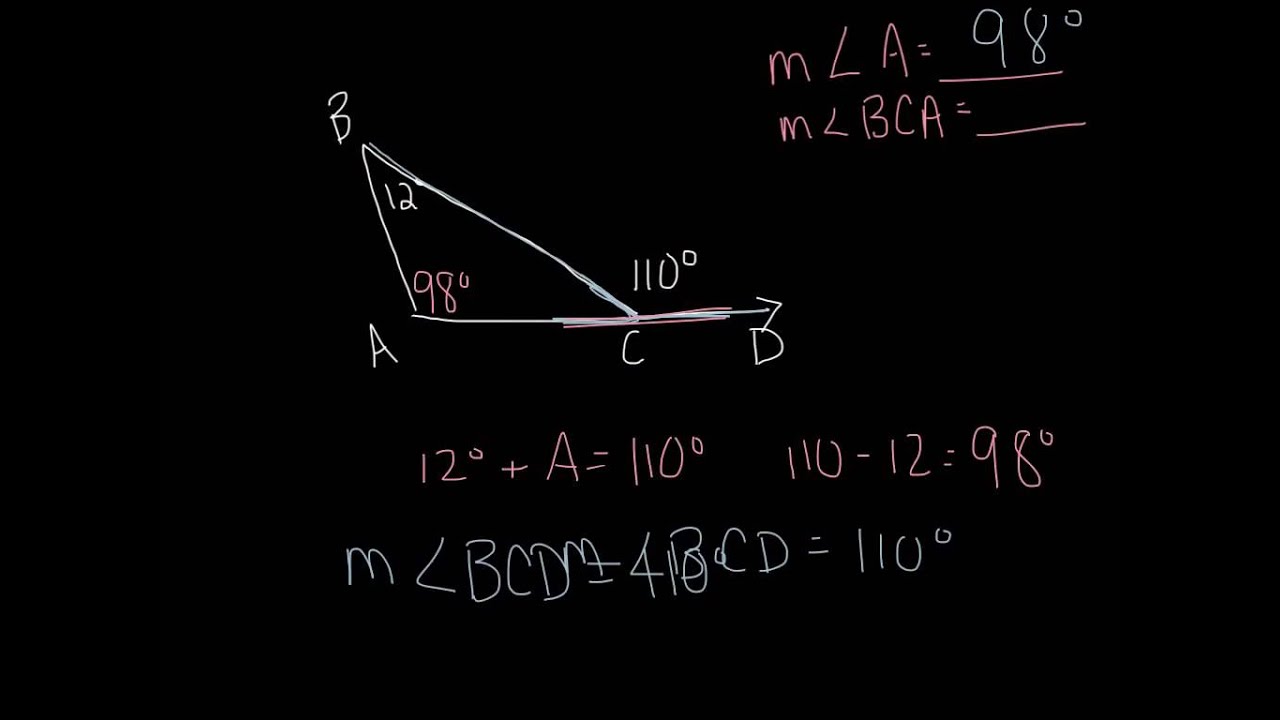 m∠A= 98°
m∠BCA=
B
12
110°
98°
A
C
D
12° + A = 110°
110 - 12 = 98°
m∠BCD = 110°